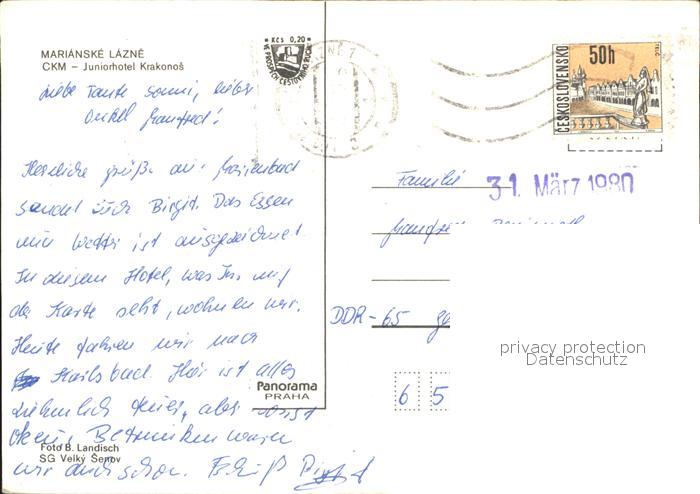 MARIÁNSKÉ LÁZNĚ
CKM – Juniorhotel Krakonoš
Kčs 0,20
ČESKOSLOVENSKO
50h
TELČ
Liebe Tante Sonni, lieber
Onkel Manfred!
Herzliche Grüße aus Marienbad
sendet Euch Birgit. Das Essen
und Wetter ist ausgezeichnet
In diesem Hotel, was Ihr auf
der Karte seht, wohnen wir.
Heute fahren wir nach
Karlsbad. Hier ist alles
ziemlich teuer, aber sonst
okay. Betrunken waren
wir auch schon. Tschüß
Familie
31. März 1980
Manfred
DDR-65
6 5
privacy protection
Datenschutz
Panorama
PRAHA
Foto B. Landisch
SG Velký Šenov